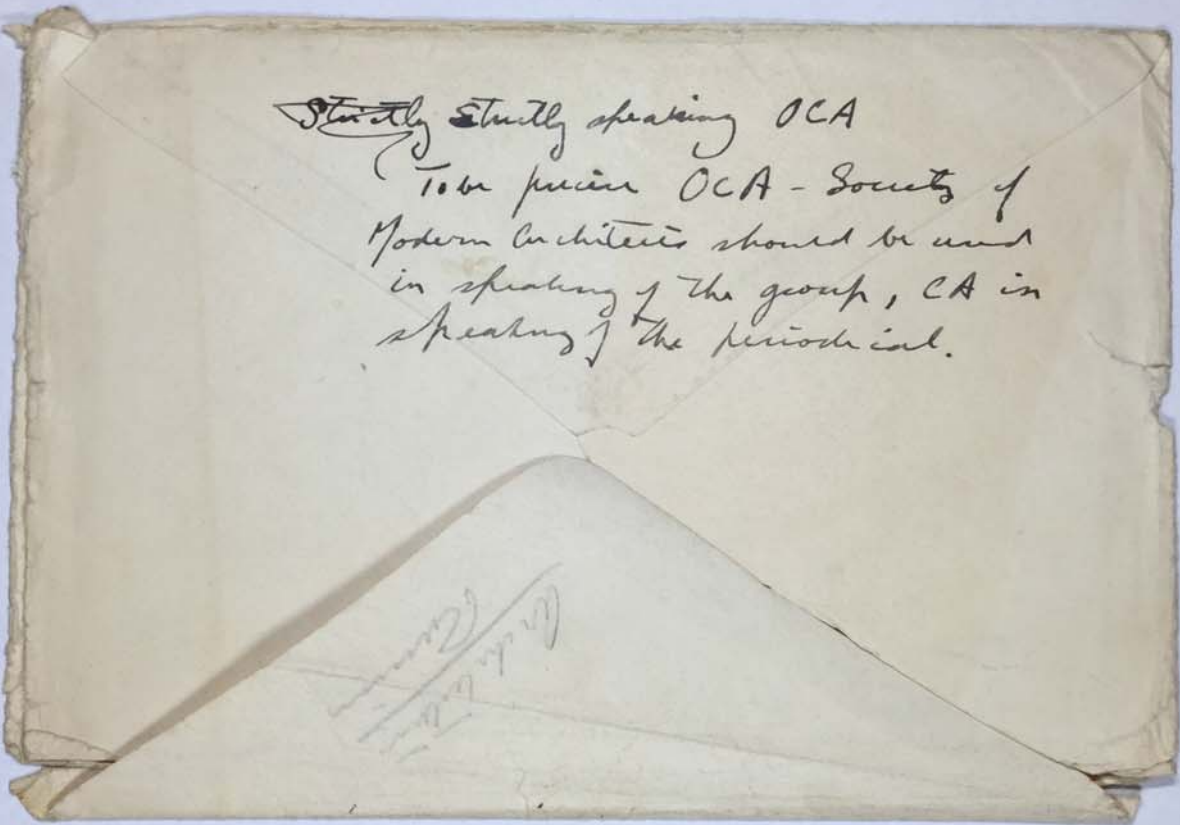 Strictly Strictly speaking OCA
To be precise OCA - Society of
Modern Architects should be used
in speaking of the group, CA in
speaking of the periodical.
Architects
Russian